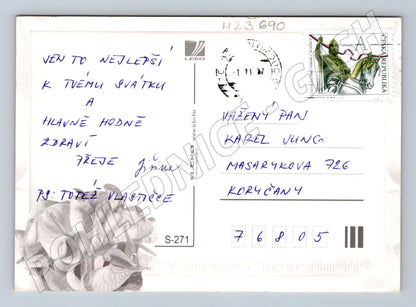 423 690
VŠE TO NEJLEPŠÍ
K TVÉMU SVÁTKU
A
HLAVNĚ HODNĚ
ZDRAVÍ
PŘEJE
PS: TOTÉŽ VLASTIČCE
LEKO
www.leko.biz
S-271
-1.11.07
ČESKÁ REPUBLIKA
VÁŽENÝ PAN
KAREL JUNCO
MASARYKOVA 726
KORYČANY
7 6 8 0 5
POHLEDNICE - GESH